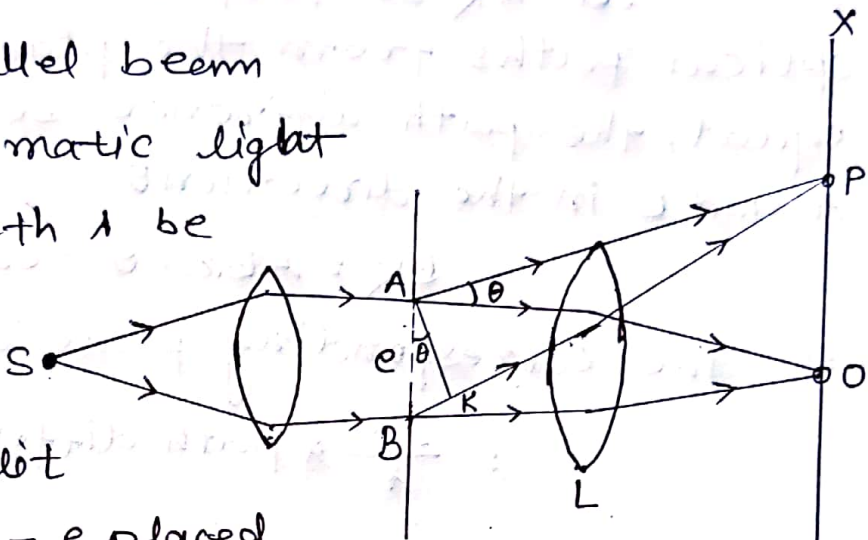 llel beam
matic light
th λ be
lit
= e placed
X
P
A
θ
S
e
θ
O
K
B
L